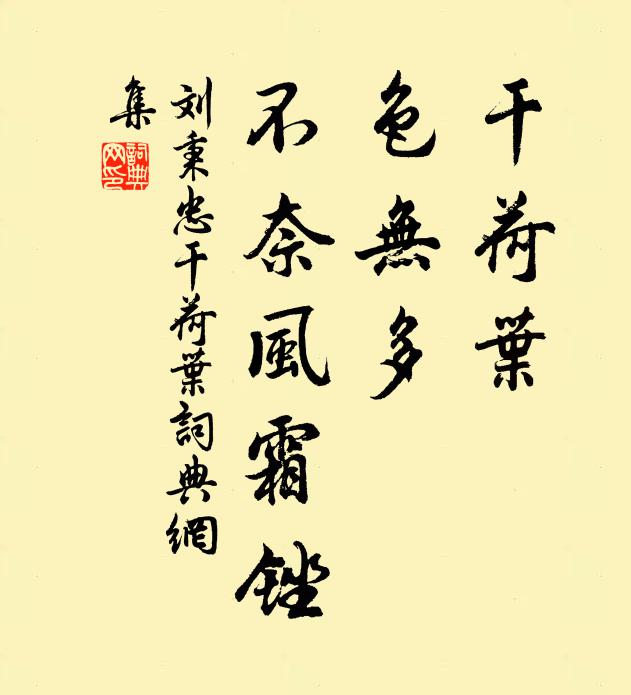 干荷葉
色無多
不奈風霜锉
刘秉忠干荷葉詞典網
集
詞典网印